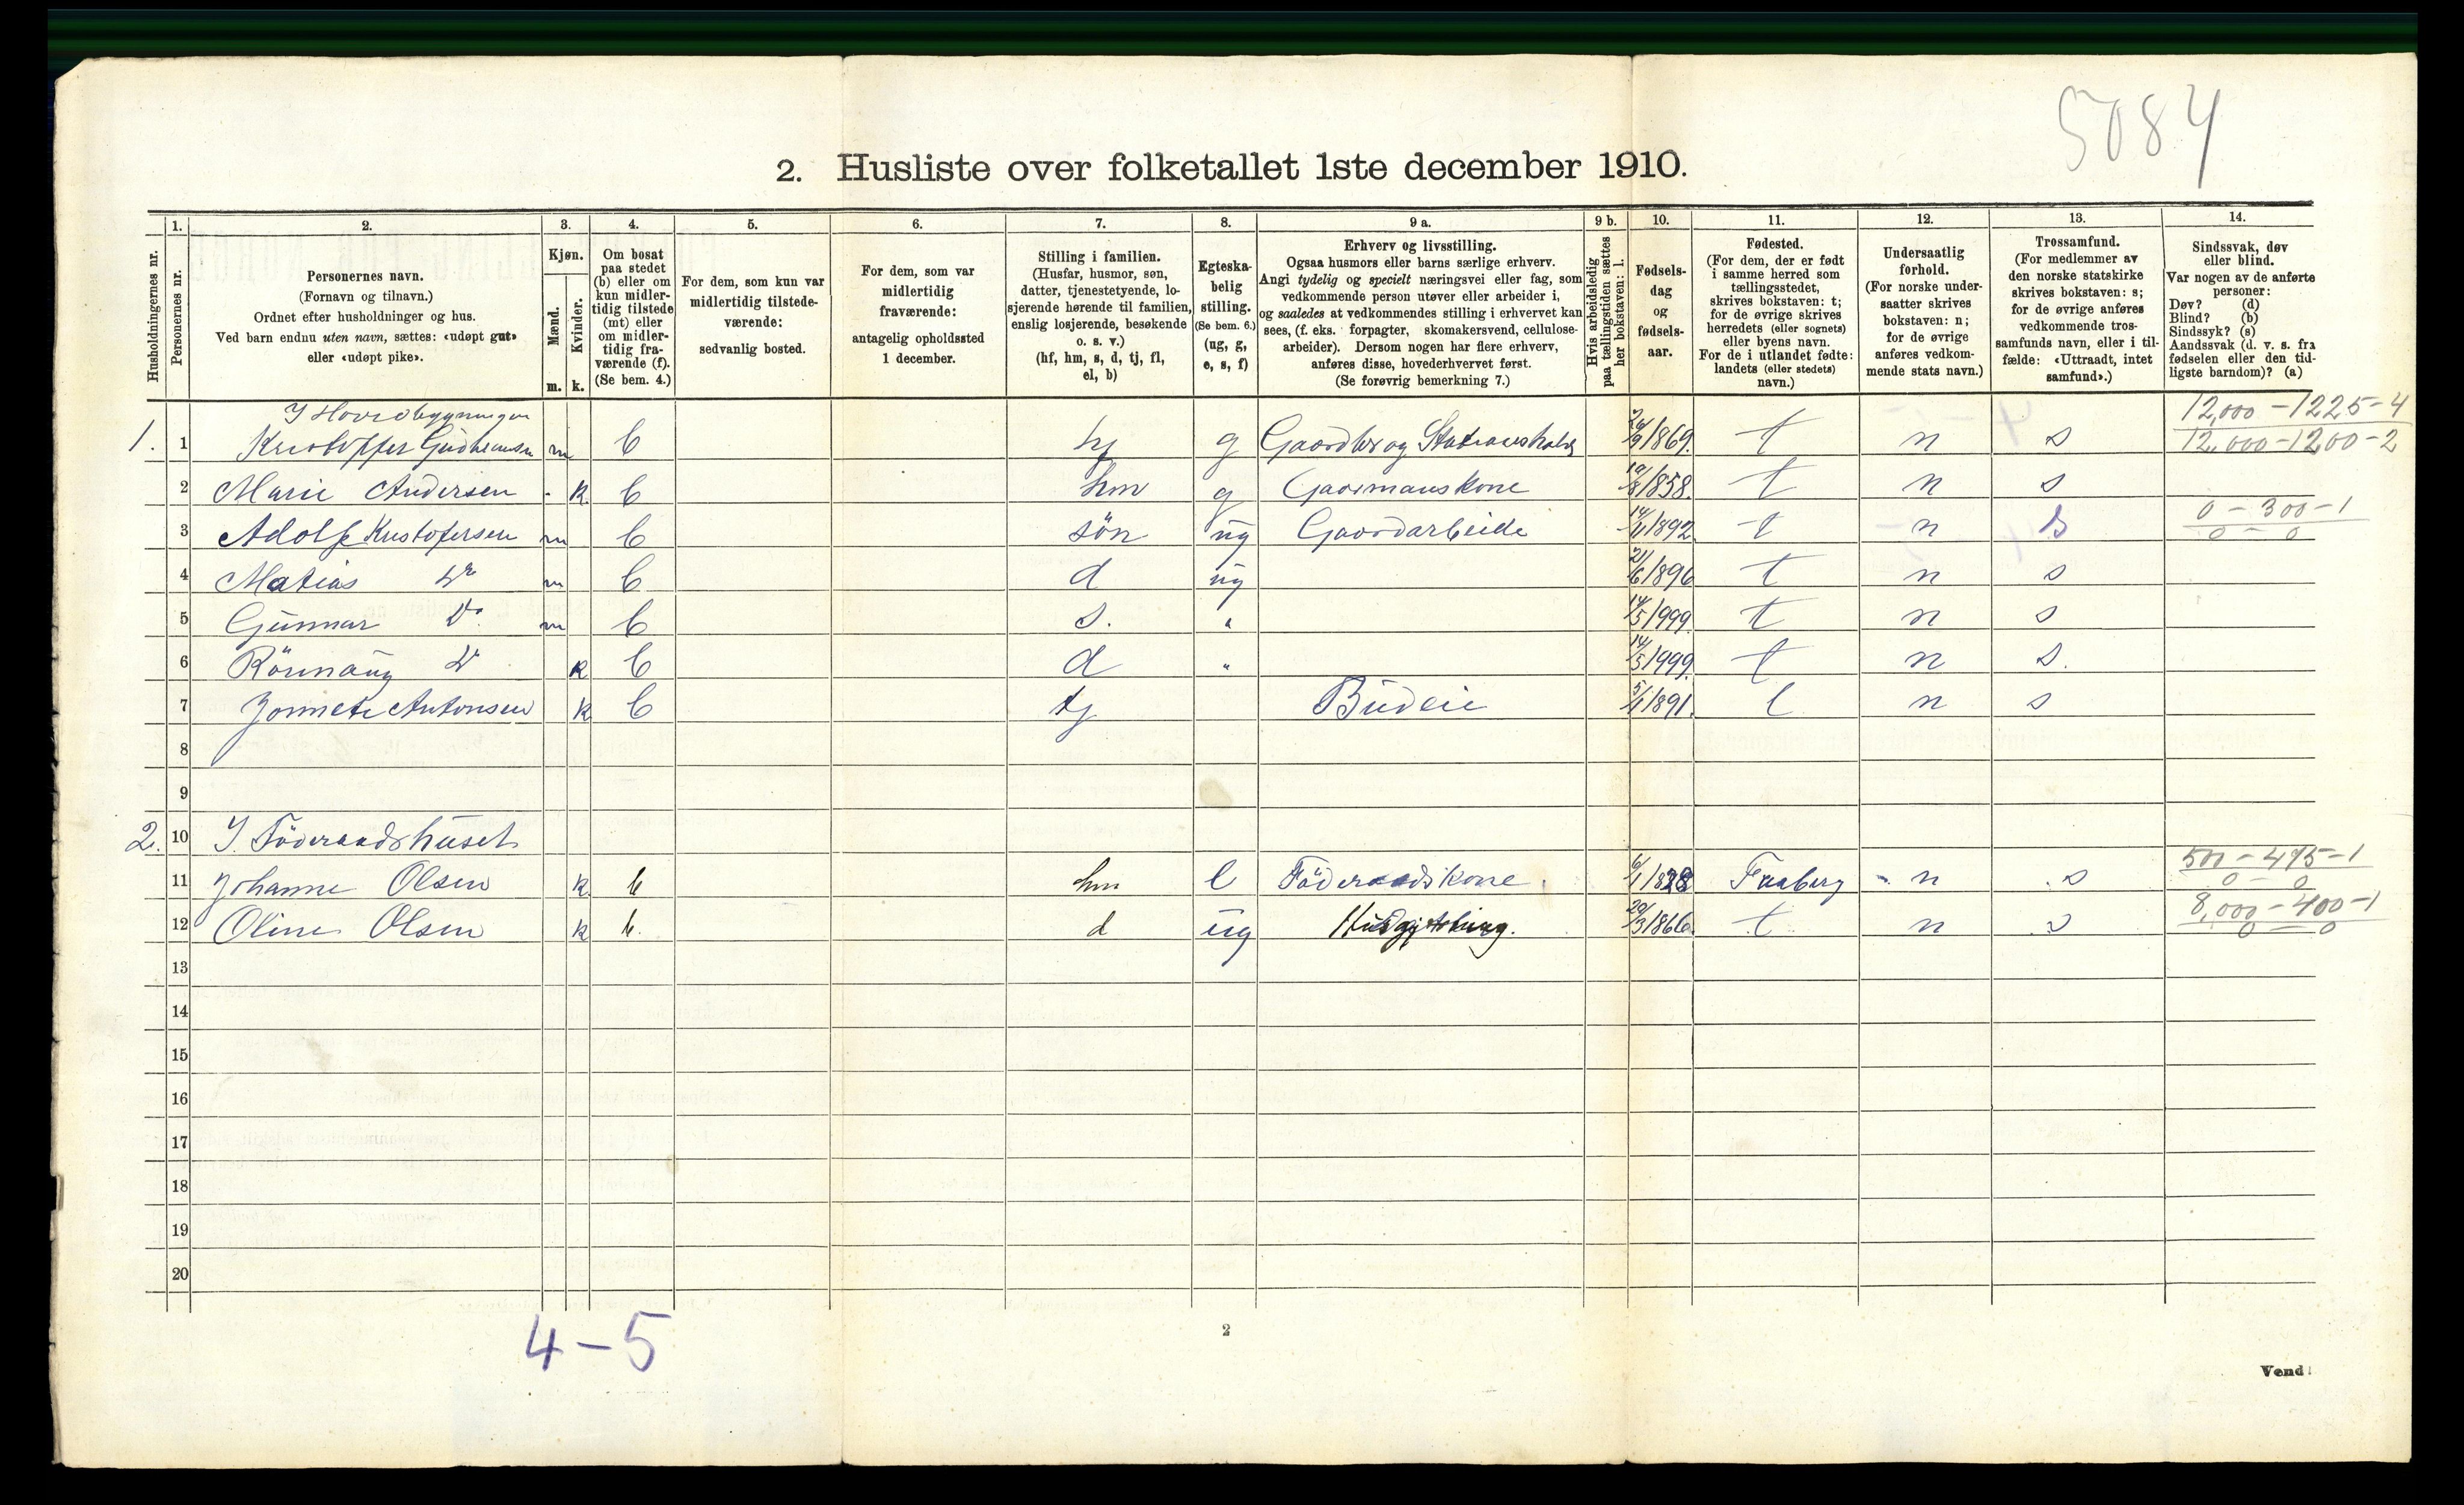 5084
2. Husliste over folketallet 1ste december 1910.
Husholdningernes nr.
1.
Personernes nr.
2.
Personernes navn.
(Fornavn og tilnavn.)
Ordnet efter husholdninger og hus.
Ved barn endnu uten navn, sættes: «udøpt gut»
eller «udøpt pike».
3.
Kjøn.
Mænd.
Kvinder.
m. k.
4.
Om bosat
paa stedet
(b) eller om
kun midler-
tidig tilstede
(mt) eller
om midler-
tidig fra-
værende (f).
(Se bem. 4.)
5.
For dem, som kun var
midlertidig tilstede-
værende:
sedvanlig bosted.
6.
For dem, som var
midlertidig
fraværende:
antagelig opholdssted
1 december.
7.
Stilling i familien.
(Husfar, husmor, søn,
datter, tjenestetyende, lo-
sjerende hørende til familien,
enslig losjerende, besøkende
o. s. v.)
(hf, hm, s, d, tj, fl,
el, b)
8.
Egteska-
belig
stilling.
(Se bem. 6.)
(ug, g,
e, s, f)
9 a.
Erhverv og livsstilling.
Ogsaa husmors eller barns særlige erhverv.
Angi tydelig og specielt næringsvei eller fag, som
vedkommende person utøver eller arbeider i,
og saaledes at vedkommendes stilling i erhvervet kan
sees, (f. eks. forpagter, skomakersvend, cellulose-
arbeider). Dersom nogen har flere erhverv,
anføres disse, hovederhvervet først.
(Se forøvrig bemerkning 7.)
9 b.
Hvis arbeidsledig
paa tællingstiden sættes
her bokstaven: l.
10.
Fødsels-
dag
og
fødsels-
aar.
11.
Fødested.
(For dem, der er født
i samme herred som
tællingsstedet,
skrives bokstaven: t;
for de øvrige skrives
herredets (eller sognets)
eller byens navn.
For de i utlandet fødte:
landets (eller stedets)
navn.)
12.
Undersaatlig
forhold.
(For norske under-
saatter skrives
bokstaven: n;
for de øvrige
anføres vedkom-
mende stats navn.)
13.
Trossamfund.
(For medlemmer av
den norske statskirke
skrives bokstaven: s;
for de øvrige anføres
vedkommende tros-
samfunds navn, eller i til-
fælde: «Uttraadt, intet
samfund».)
14.
Sindssvak, døv
eller blind.
Var nogen av de anførte
personer:
Døv? (d)
Blind? (b)
Sindssyk? (s)
Aandssvak (d. v. s. fra
fødselen eller den tid-
ligste barndom)? (a)
I Hovedbygningen 12,000 - 1225 - 4
1. 1 m b hf g 1869. t n s 12,000 - 1200 - 2
2 Marie Andersen k b hm g Gaarmanskone 1858. t n s
3 Adolf Kristofersen m b søn ug Gaardarbeide 1892. t n s 0 - 300 - 1
0 - 0
4 Matias Do m b d ug 21/6 1896 t n s
5 Gunnar Do m b s. " 14/5 1999. t n s
6 Rönnaug Do k b d " 14/5 1999. t n s.
7 Antonsen k b tj Budeie 5/1 1891. t n s
8
9
2. 10 I Föderaadshuset
11 Johanne Olsen k b hm e Föderaadskone. 6/1 1828 Faaberg n s 500 - 475 - 1
0 - 0
12 Oline Olsen k b. d ug 1866. t n s 8,000 - 400 - 1
0 - 0
13
14
15
16
17
18
19
20
4-5
2
Vend!